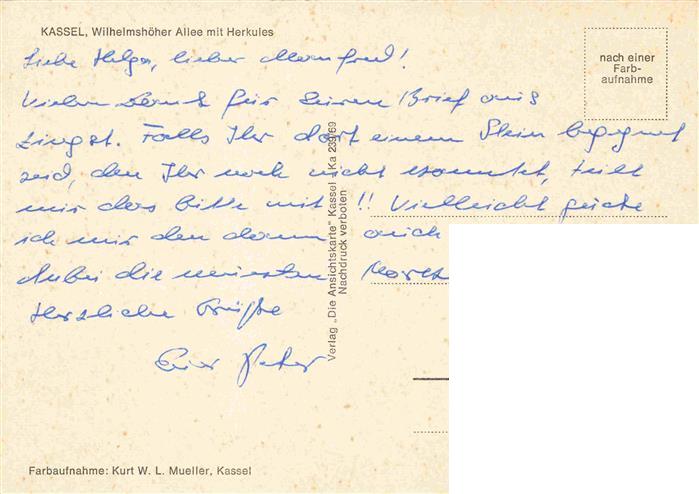 KASSEL, Wilhelmshöher Allee mit Herkules
nach einer
Farb-
aufnahme
Liebe Helga, lieber Manfred!
Vielen Dank für Deinen Brief aus
Zingst. Falls Ihr dort einem Stein begegnet
seid, den Ihr noch nicht kanntet, teilt
mir das bitte mit!! Vielleicht
ich mir den dann auch
Anbei die
Herzliche Grüße
Euer Peter
Verlag „Die Ansichtskarte" Kassel Ka 239/69
Nachdruck verboten
Farbaufnahme: Kurt W. L. Mueller, Kassel